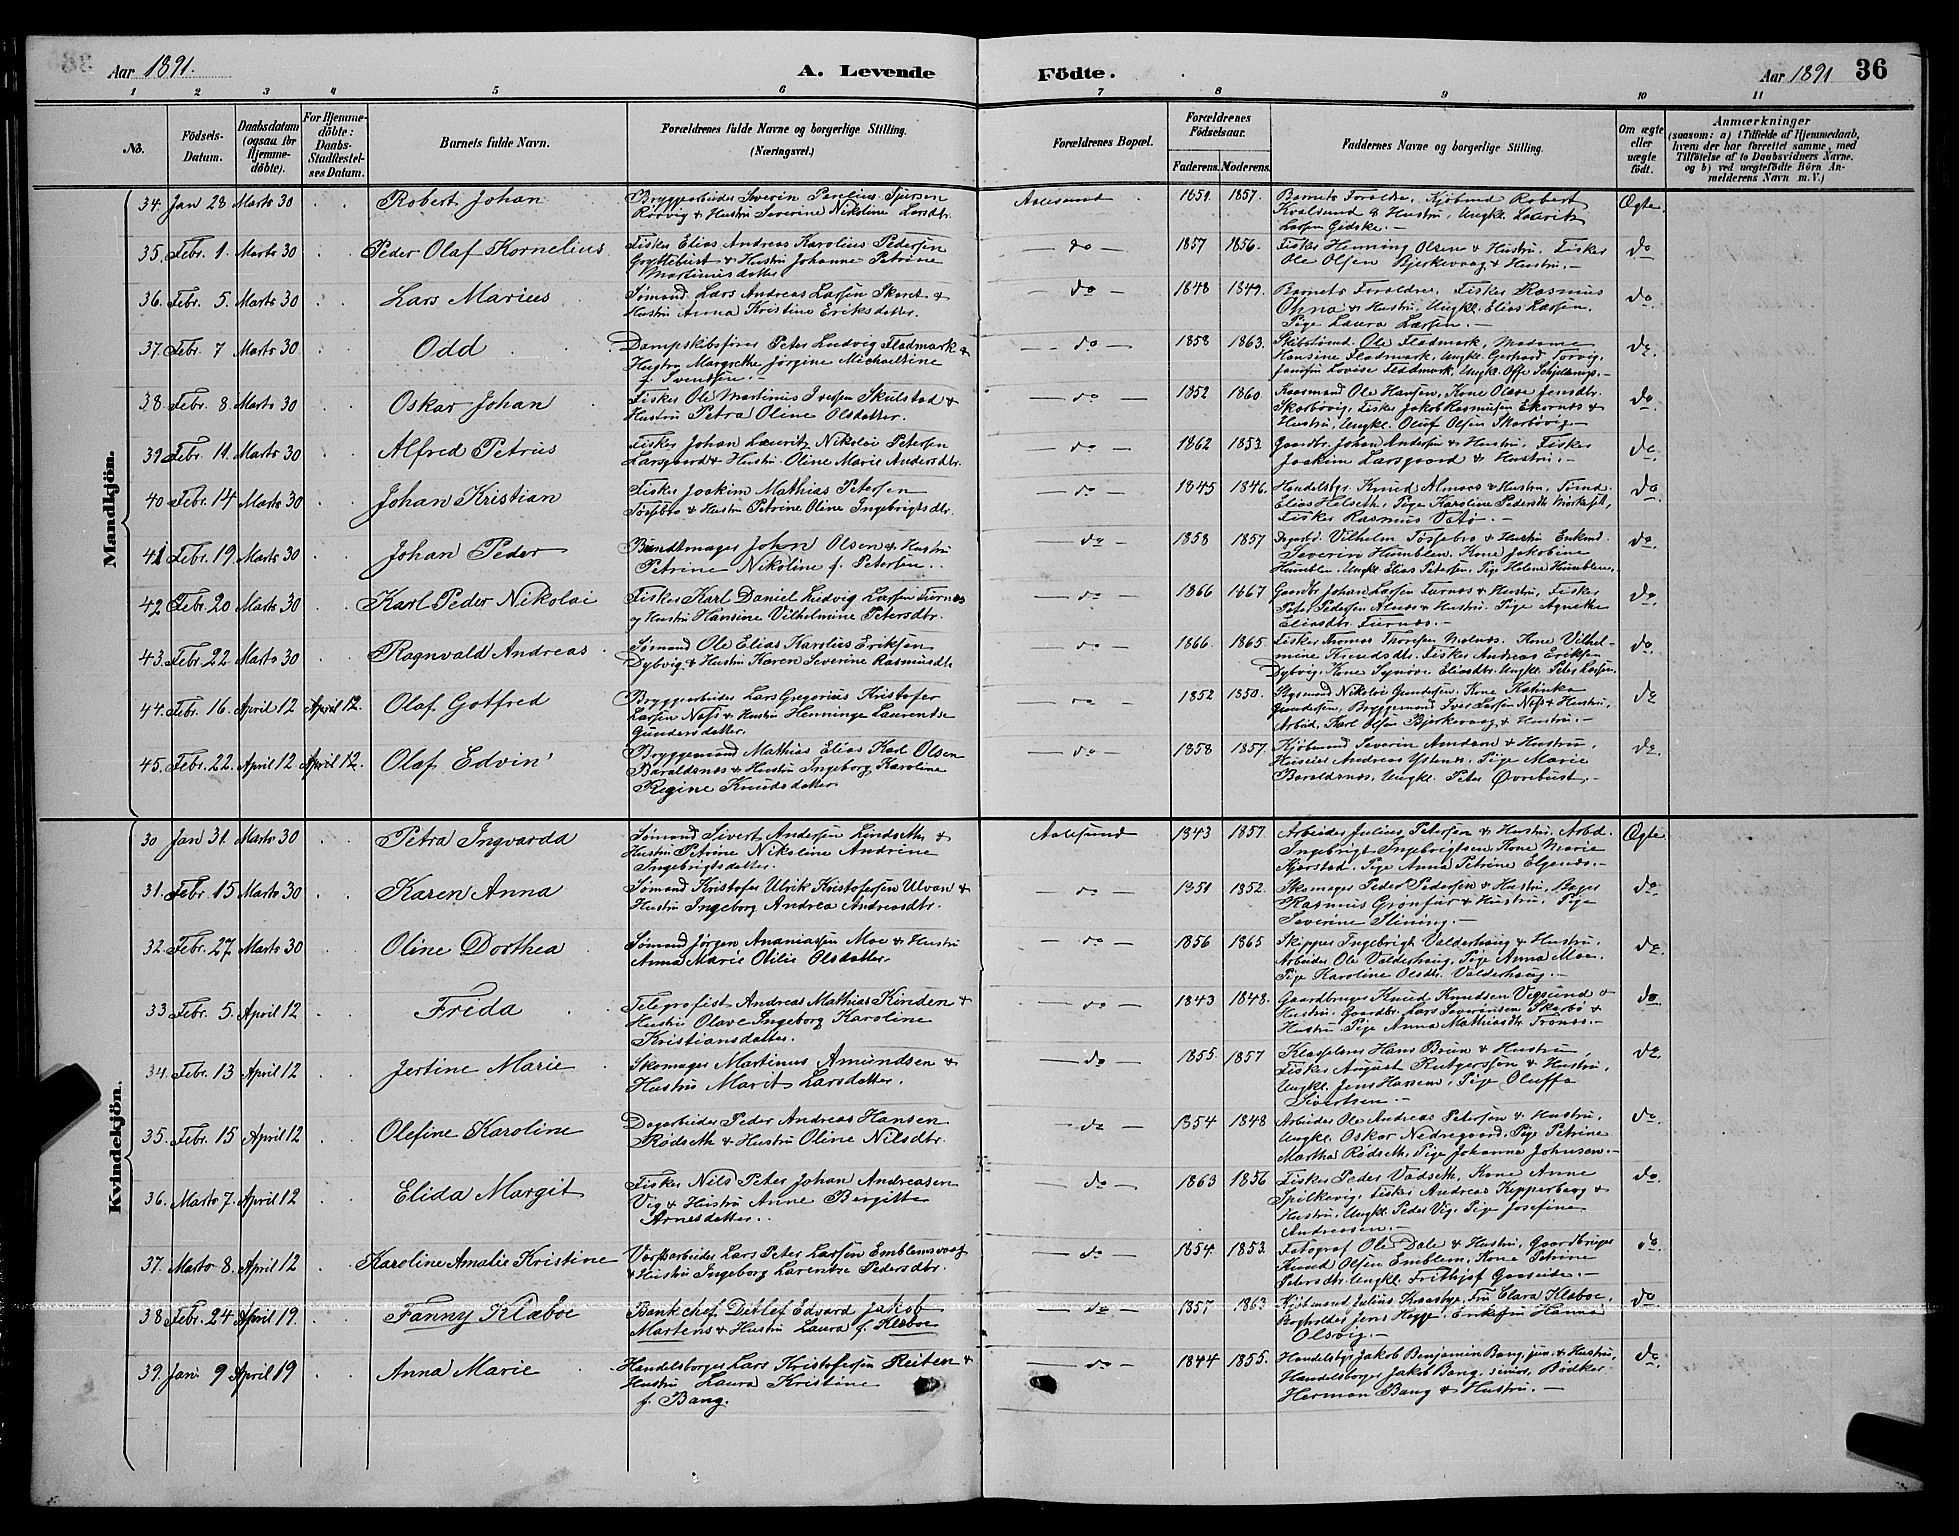 Aar 1891.
A. Levende
Födte.
Aar 1891
36
1 2 3 4 5 6 7 8 8 9 10 11
No.
Födsels-
Datum.
Daabsdatum
(ogsaa for
Hjemme-
döbte).
For Hjemme-
döbte:
Daabs-
Stadfæstel-
ses Datum.
Barnets fulde Navn.
Forældrenes fulde Navne og borgerlige Stilling.
(Næringsvei.)
Forældrenes Bopæl.
Forældrenes
Födselsaar.
Faderens. Moderens.
Faddernes Navne og borgerlige Stilling.
Om ægte
eller
uægte
født.
Anmærkninger
(saasom: a) i Tilfælde af Hjemmedaab,
hvem der har forrettet samme, med
Tilföielse af to Daabsvidners Navne,
og b) ved uægtefødte Börn An-
melderens Navn m. V.)
Mandkjön.
34. Jan 28 Marts 30 Robert Johan
Bryggearbeider Severin Parelius Sjursen
Rörvig & Hustru Severine Nikoline Larsdtr.
Aalesund 1851. 1857.
Barnets Forældre, Kjöbmd Robert
Kvalsund & Hustru, Ungkl. Laurits
Larsen Gidske.
Ægte
35. Febr. 1. Marts 30 Peder Olaf Kornelius
Fisker Elias Andreas Karolius Pedersen
Gryttebust & Hustru Johanne Petrine
Martinusdatter
do 1857 1856.
Fisker Henning Olsen & Hustru. Fisker
Ole Olsen Bjerkevaag & Hustru.
do
36. Febr. 5. Marts 30 Lars Marius
Sömand Lars Andreas Larsen Skaret &
Hustru Anna Kristine Eriksdatter.
do 1848 1849.
Barnets Forældre, Fisker Rasmus
Otnna & Hustru, Ungkl. Elias Larsen.
Pige Laura Larsen.
do
37. Febr. 7 Marts 30 Odd
Dampskibsförer Peter Ludvig Fladmark &
Hustru Margrethe Jörgine Michaeltine
f. Svendsen.
do 1858 1863.
Skibstömd. Ole Fladmark, Madame
Hansine Fladmark, Ungkl. Gerhard Torvig,
Jomfru Lovise Fladmark, Ungkl. Offe Schjelderup.
do
38. Febr. 8 Marts 30 Oskar Johan
Fisker Ole Martinus Iversen Skulstad &
Hustru Petra Oline Olsdatter.
do 1852 1860
Kaarmand Ole Hansen, Kone Olave Jensdtr.
Skarbövig, Fisker Jakob Rasmusen Ekornæs &
Hustru, Ungkl. Oluf Olsen Skarbövig.
do
39 Febr. 11. Marts 30 Alfred Petrus
Fisker Johan Laurits Nikolai Petersen
Larsgaard & Hustru Oline Marie Andersdtr.
do 1862 1853.
Gaardbr. Johan Andersen & Hustru, Fisker
Joakim Larsgaard & Hustru.
do
40 Febr. 14 Marts 30 Johan Kristian
Fisker Joakim Mathias Petersen
Tossebro & Hustru Petrine Oline Ingebrigtsdtr.
do 1845 1846.
Handelsbgr. Knud Alnæs & Hustru, Tömd.
Elias Helseth, Pige Karoline Pedersdtr
Fisker Rasmus Vatö.
do
41 Febr. 19 Marts 30 Johan Peder
Bundtmager John Olsen & Hustru
Petrine Nikoline f. Petersen.
do 1858 1857
Dagarbd. Vilhelm Tossebro & Hustru Enkemd.
Severin Humblen, Kone Jakobine
Humblen, Ungkl. Elias Petersen, Pige Helene Humblen.
do
42 Febr. 20 Marts 30 Karl Peder Nikolai
Fisker Karl Daniel Ludvig Larsen Furnæs
og Hustru Hansine Vilhelmine Petersdtr.
do 1866 1867
Gaardbr. Johan Larsen Furnæs & Hustru, Fisker
Peter Pedersen Alnæs & Hustru. Pige Agnethe
Eliasdtr. Furnæs.
do
43. Febr. 22 Marts 30 Ragnvald Andreas
Sömand Ole Elias Karolius Eriksen
Dybvig & Hustru Karen Severine Rasmusdtr.
do 1866 1865.
Fisker Thomas Thoresen Molnæs, Kone Vilhel-
mine Knudsdtr. Fisker Andreas Eriksen
Dybvig. Kone Synöve Eliasdtr. Ungkl. Peter Larsen.
do
44. Febr. 16 April 12 April 12. Olaf Gotfred
Bryggearbeider Lars Gregorius Kristofer
Larsen Næss & Hustru Henninge Laurentse
Gundersdatter.
do 1852 1850.
Nikolai Gundersen, Kone Katinka
Gundersen, Bryggemand Iver Larsen Næss & Hustru,
Arbeid. Karl Olsen Bjerkevaag & Hustru.
do
45. Febr. 22. April 12 April 12. Olaf Edvin
Bryggemand Mathias Elias Karl Olsen
Baraldsnæs & Hustru Ingeborg Karoline
Regine Knudsdatter
do 1858 1857.
Kjöbmand Severin Amdam & Hustru.
Huseier Andreas Ystenæs. Pige Marie
Baraldsnæs. Ungkl. Peter Övrebust.
do
Kvindekjön.
30 Jan 31. Marts 30 Petra Ingvarda
Sömand Sivert Andersen Lindseth &
Hustru Petrine Nikoline Andrine
Ingebrigtsdatter.
Aalesund 1843 1857.
Arbeider Julius Petersen & Hustru. Arbd.
Ingebrigt Ingebrigtsen, Kone Marie
Kjerstad. Pige Anna Petrine Elgenæs.
Ægte
31. Febr. 15 Marts 30 Karen Anna
Sömand Kristofer Ulrik Kristofersen Ulvan &
Hustru Ingeborg Andrea Andreasdtr.
do 1851 1852.
Skomager Peder Pedersen & Hustru. Bager
Rasmus Grönfur & Hustru. Pige
Severine Slining.
do
32. Febr. 27 Marts 30 Oline Dorthea
Sömand Jörgen Ananiassen Moe & Hustru
Anna Marie Otilie Olsdatter.
do 1856 1865
Skipper Ingebrigt Valderhaug & Hustru.
Arbeider Ole Valderhaug, Pige Anna Moe.
Pige Karoline Olsdtr. Valderhaug.
do
33 Febr. 5. April 12 Frida
Telegrafist Andreas Mathias Kinden &
Hustru Olave Ingeborg Karoline
Kristiansdatter.
do 1843 1848.
Gaardbruger Knud Knudsen Vegsund &
Hustru. Gaardbr. Lars Severinsen Skarbö &
Hustru. Pige Anna Mathiasdtr. Tronæs.
do
34. Febr. 13 April 12 Jertine Marie
Skomager Martinus Amundsen &
Hustru Marit Larsdatter.
do 1855. 1857
Hans Brun & Hustru
Fisker August Rutgersson & Hustru.
Ungkl. Jens Hansen, Pige Oluffa
Sivertsen.
do
35. Febr. 15 April 12 Olefine Karoline
Dagarbeider Peder Andreas Hansen
Rödseth & Hustru Oline Nilsdtr.
do 1854 1848
Arbeider Ole Andreas Petersen & Hustru.
Ungkl. Oskar Nedregaard, Pige Petrine
Martha Rödseth, Pige Johanna Johnsen.
do
36. Marts 7. April 12 Elida Margit
Fisker Nils Peter Johan Andreasen
Vig & Hustru Anne Birgitte
Arnesdatter.
do 1863 1856
Fisker Peder Vadseth, Kone Anne
Spilkevig, Fisker Andreas Kipperberg &
Hustru. Ungkl. Peder Vig. Pige Josefine
Andreasen.
do
37. Marts 8. April 12 Karoline Amalie Kristine
Værftsarbeider Lars Peter Larsen Emblemsvaag
& Hustru Ingeborg Larentse Pedersdtr.
do 1854 1853.
Fotograf Ole Dale & Hustru, Gaardbruger
Knud Olsen Emblem, Kone Petrine
Petersdtr. Ungkl. Frithjof Gaaseide.
do
38 Febr. 24 April 19. Fanny Klæboe
Bankchef Detlef Edvard Jakob
Martens & Hustru Laura f. Klæboe
do 1857 1863
Kjöbmand Julius Kraasbye, Fru Elara Klæboe,
Bogholder Jens Hagge. Enkefru Hanna
Olsvig.
do
39. Jan. 9 April 19 Anna Marie
Handelsborger Lars Kristofersen Reiten &
Hustru Laura Kristine
f. Bang.
do 1844 1855.
Handelsbgr Jakob Benjamin Bang, jun. & Hustru,
Handelsborger Jakob Bang, senior, Bödker
Herman Bang & Hustru.
do